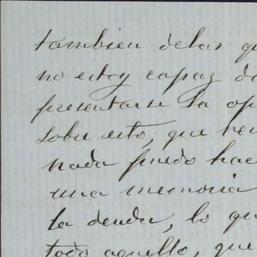 tambien debas qu
no estoy capaz de
presentarse la op
sobre esto, que ven
nada puedo hace
una memoria
la deuda, lo qu
todo aquello, que